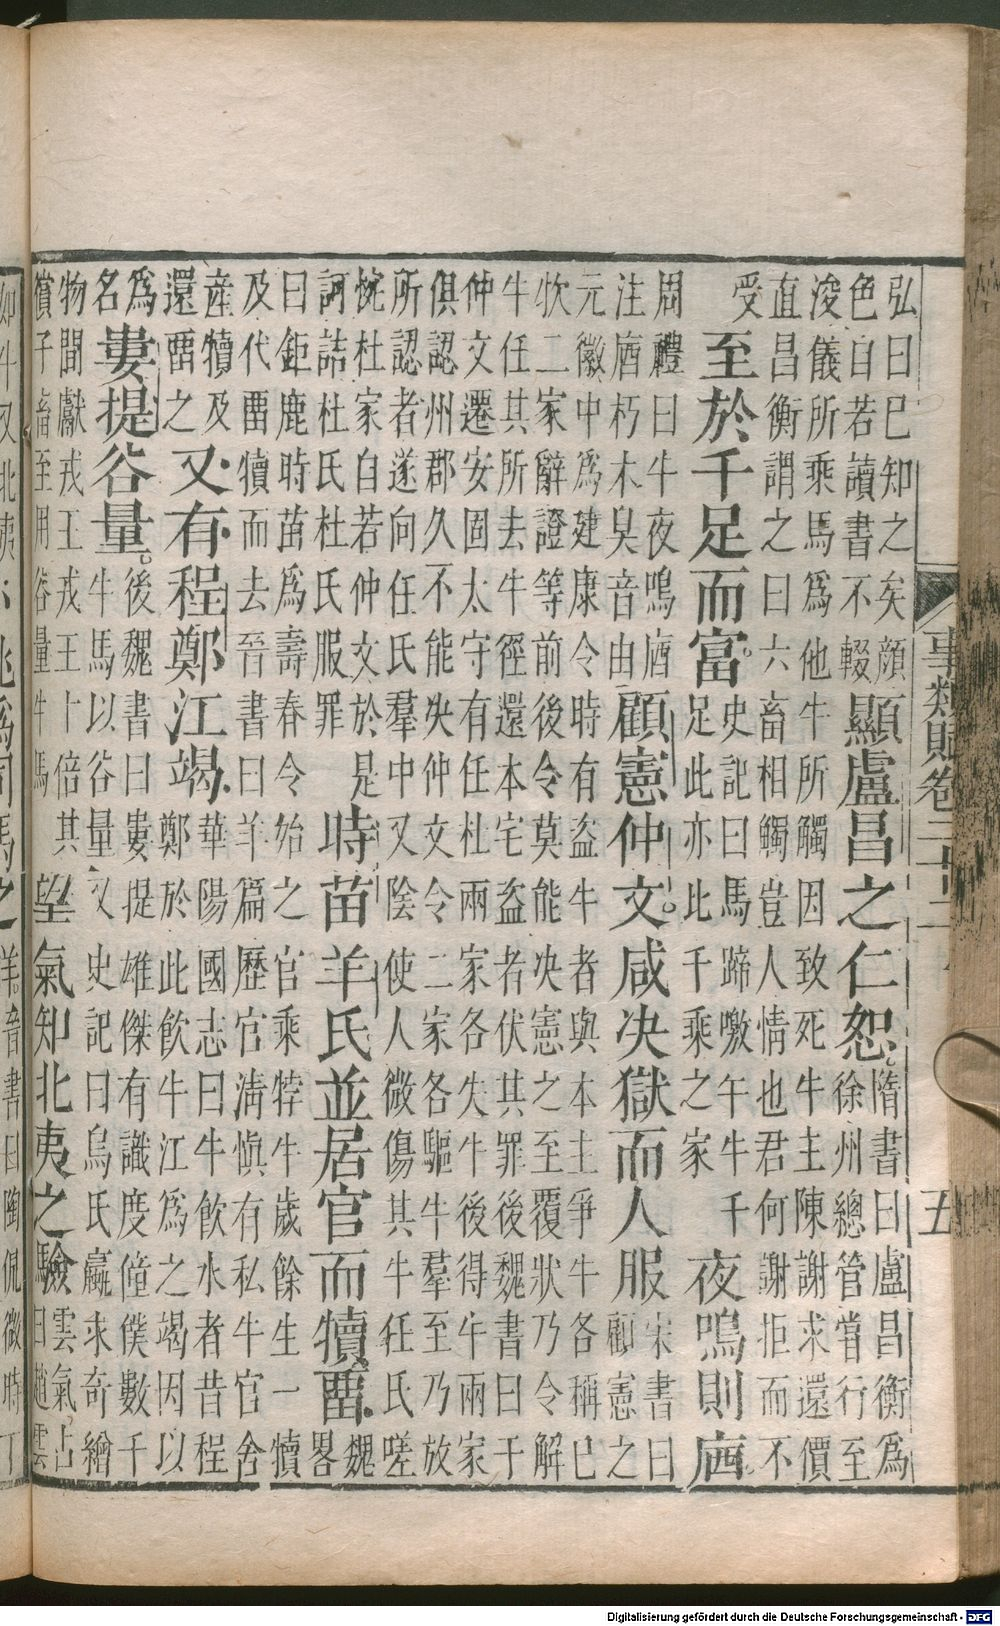 事類賦卷二十二
五
弘曰巳知之矣顏
色自若讀書不輟
顯盧昌之仁恕
隋書曰盧昌衡為
徐州總管嘗行至
浚儀所乘馬為他牛所觸因致死牛主陳謝求還價
直昌衡謂之曰六畜相觸豈人情也君何謝拒而不
受
至於千足而富
史記曰馬蹄噭午牛千
足此亦比千乘之家
夜鳴則庮
周禮曰牛夜鳴庮
注庮朽木臭音由
顧憲仲文咸决獄而人服
宋書曰
顧憲之
元徽中為建康令時有盗牛者與本主爭牛各稱巳
牧二家辭證等前後令莫能决憲之至覆狀乃令解
牛任其所去牛徑還本宅盗者伏其罪後魏書曰于
仲文遷安固太守有任杜兩家各失牛後得牛兩家
俱認州郡久不能决仲文令二家各驅牛羣至乃放
所認者遂向任氏羣中又陰使人微傷其牛任氏嗟
惋杜家自若仲文於是
訶詰杜氏杜氏服罪
時苗羊氏並居官而犢畱
魏
畧
曰鉅鹿時苗為壽春令始之官乘牸牛歲餘生一犢
及代畱犢而去晉書曰羊篇歷官清慎有私牛官舍
産犢及
還畱之
又有程鄭江竭
華陽國志曰牛飲水者昔程
鄭於此飲牛江為之竭因以
為
名
婁提谷量
後魏書曰婁提雄傑有識度僮僕數千
牛馬以谷量又史記曰烏氏蠃求奇繒
物間獻戎王戎王十倍其
償子畜至用谷量牛馬
望氣知北夷之驗
雲氣占
曰趙雲
羊晉書曰陶侃微時丁
Digitalisierung gefördert durch die Deutsche Forschungsgemeinschaft - DFG